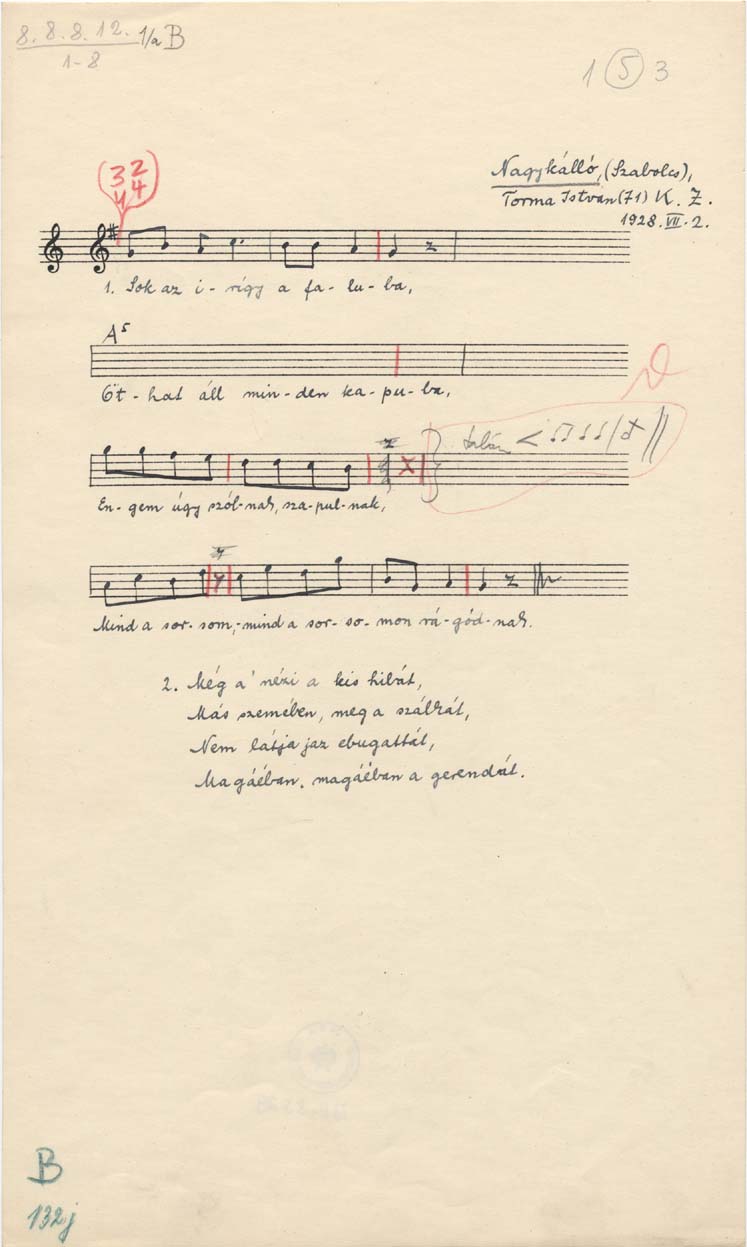 8. 8. 8. 12. 1/a B
1-8
1 5 3
Nagykálló, (Szabolcs),
Torma István (71) K. Z.
1928. VII. 2.
3 2
4 4
1. Sok az i - rigy a fa - lu - ba,
A⁵
Öt - hat áll min - den ka - pu - ba,
talán
En - gem úgy szól - nak, sza - pul - nak,
Mind a sor - som, - mind a sor - so - mon rá - gód - nak.
2. Még a' nézi a kis hibát,
Más szemében, meg a szálkát,
Nem látja jaz ebugattát,
Magáéban, magáéban a gerendát.
B
132j